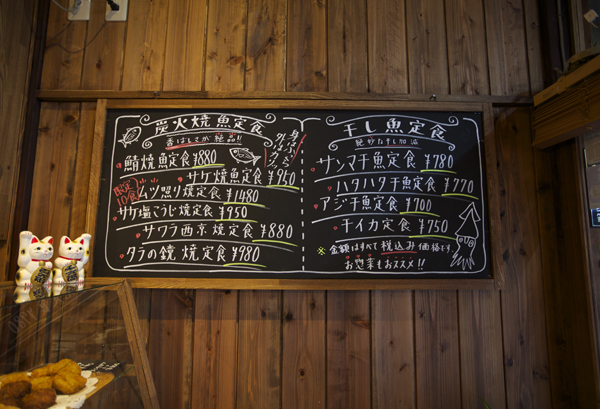 炭火焼魚定食
香ばしさが絶品!!
鯖焼魚定食 ¥880
サケ焼魚定食 ¥950
限定10食
ムツ照り焼定食 ¥1480
サケ塩こうじ焼定食 ¥950
サワラ西京焼定食 ¥880
タラの鏡焼定食 ¥980
干し魚定食
絶妙な干し加減
サンマ干魚定食 ¥780
ハタハタ干魚定食 ¥770
アジ干魚定食 ¥700
干イカ定食 ¥750
※金額はすべて税込み価格です
お惣菜もおススメ!!